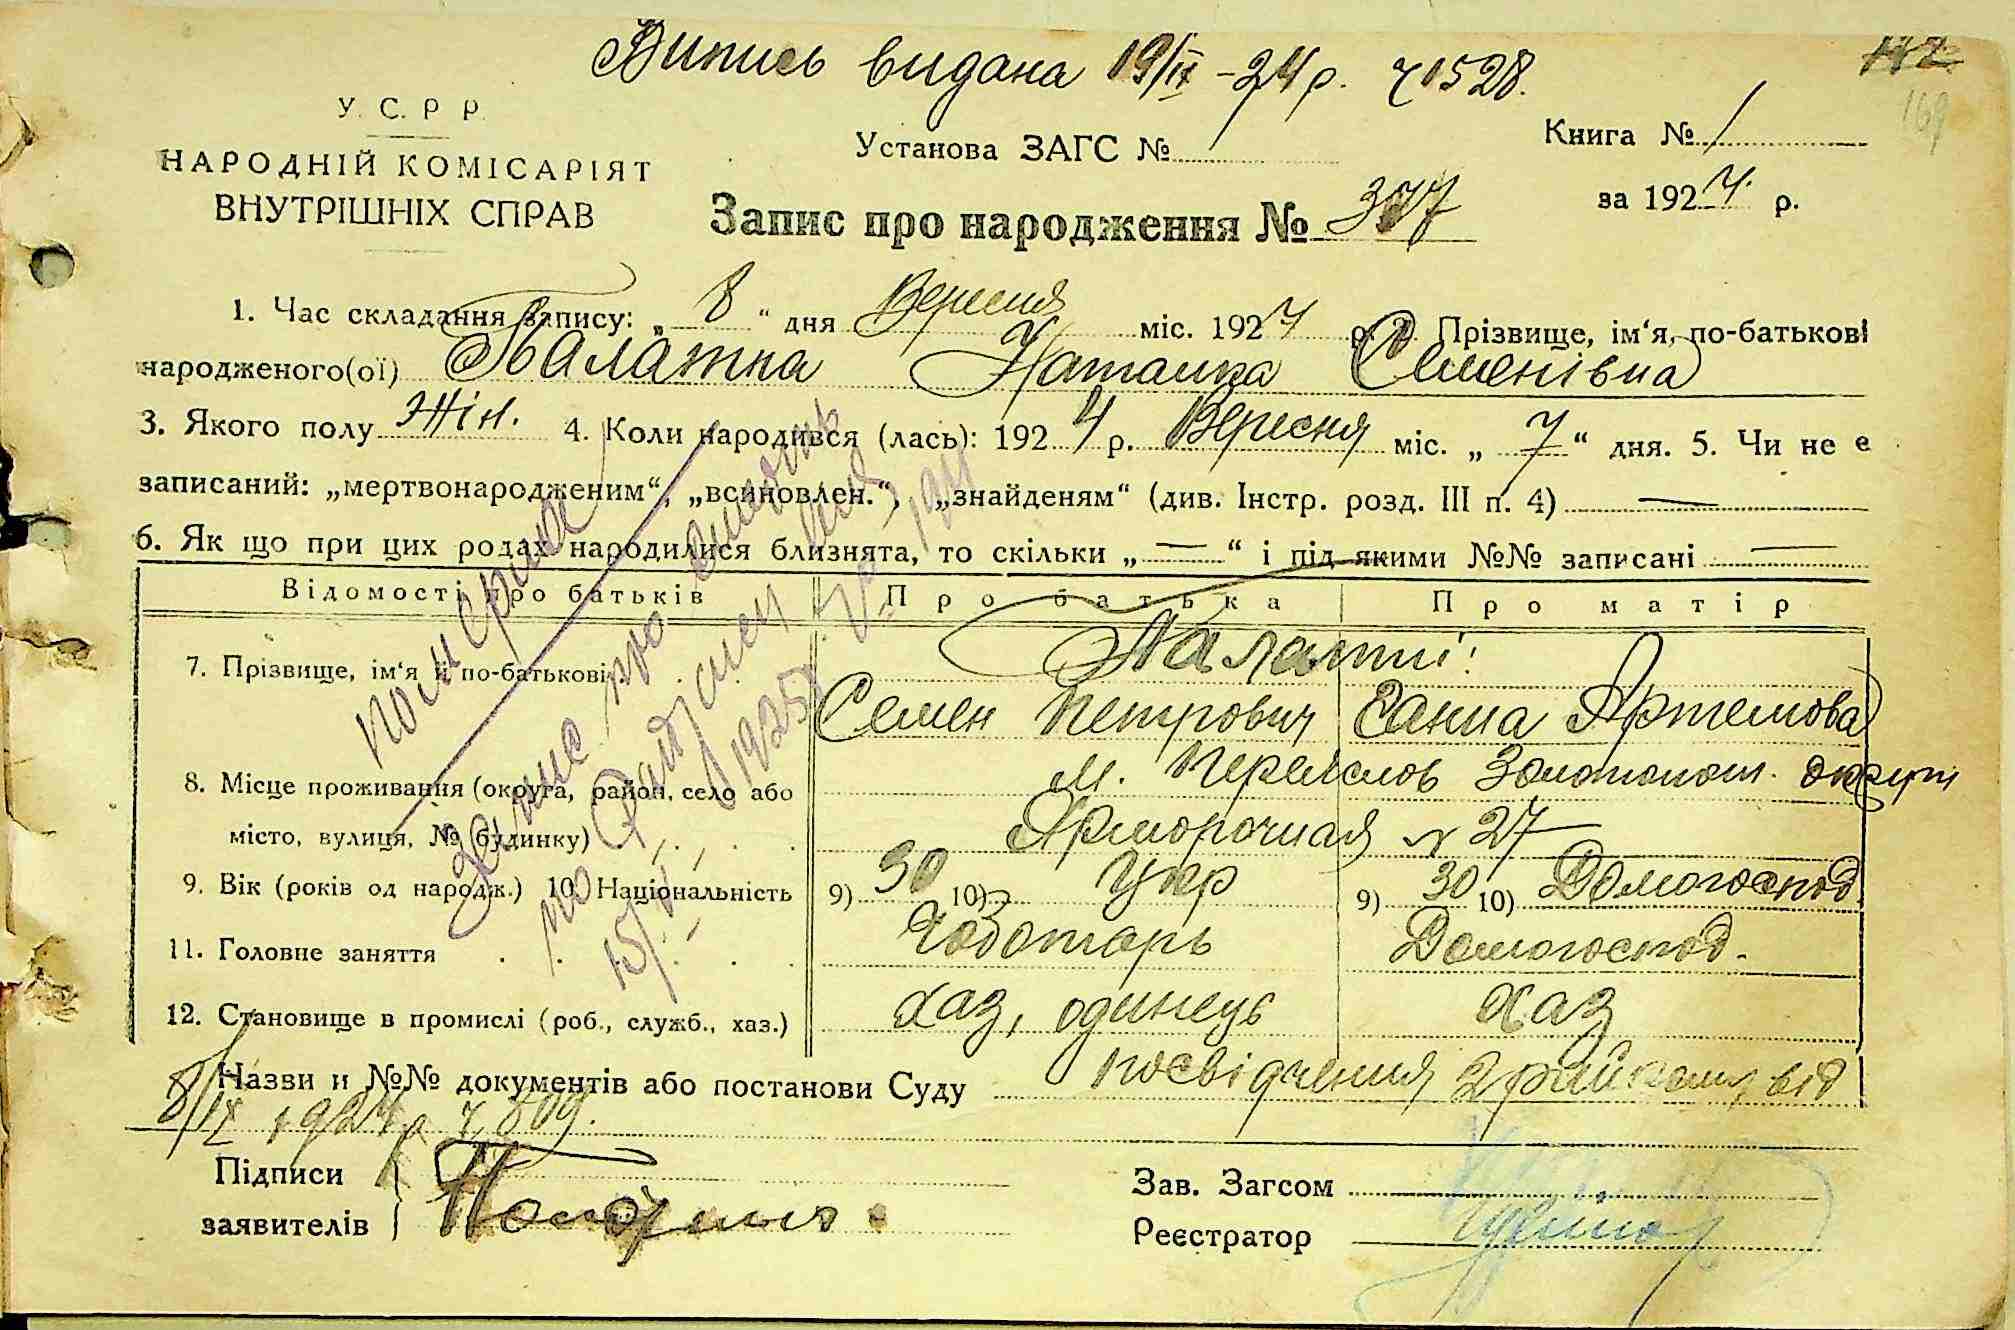 Випись видана 19/IX - 24 р. ч 1528.
142
169
У. С. Р. Р.
НАРОДНІЙ КОМІСАРІЯТ
ВНУТРІШНІХ СПРАВ
Установа ЗАГС №
Книга № 1
за 1924 р.
Запис про народження № 377
1. Час складання запису: „ 8 “ дня Вересня міс. 1924 р. 2. Прізвище, ім‘я, по-батькові
народженого(ої) Палатна Наталка Семенівна
3. Якого полу жін. 4. Коли народився (лась): 1924 р. Вересня міс. „ 7 “ дня. 5. Чи не є
записаний: „мертвонародженим“, „всиновлен.“, „знайденям“ (див. Інстр. розд. III п. 4) —
6. Як що при цих родах народилися близнята, то скільки „ — “ і під якими №№ записані —
Відомості про батьків Про батька Про матір
7. Прізвище, ім‘я й по-батькові
Семен Петрович Ганна Артемова
8. Місце проживання (округа, район, село або
м. Переяслов Золотонош. округи
місто, вулиця, № будинку)
Ярморочная № 27
9. Вік (років од народж.) 10. Національність 9) 30 10) Укр 9) 30 10) Домогоспод.
11. Головне заняття Чоботарь Домогоспод.
12. Становище в промислі (роб., служб., хаз.) хаз, одинець хаз
Назви и №№ документів або постанови Суду посвідчення 2 від
8/IX 1924 р ч 809.
Підписи
заявителів
Зав. Загсом
Реєстратор
Запис про
1925